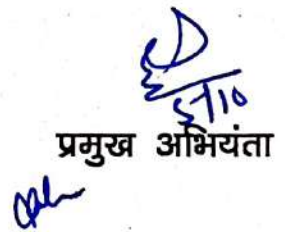 5/10
प्रमुख अभियंता